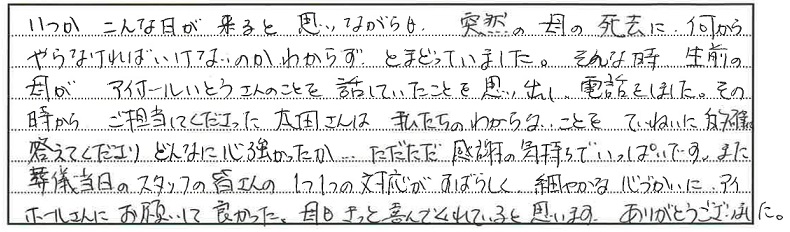 いつか こんな日が 来ると 思いながらも、突然の 母の 死去に、何から
やらなければいけないのかわからず とまどっていました。そんな時 生前の
母が アイホールいとうさんのことを 話していたことを 思い出し、電話をしました。その
時から ご担当してくださった 太田さんは 私たちのわからない ことを ていねいに 的確に
答えてくださり どんなに心強かったか… ただただ 感謝の気持ちでいっぱいです。また
葬儀当日のスタッフの皆さんの 1つ1つの 対応が すばらしく 細やかな 心づかいに、アイ
ホールさんに お願いして 良かった。母も きっと喜んでくれていると思います。ありがとうございました。